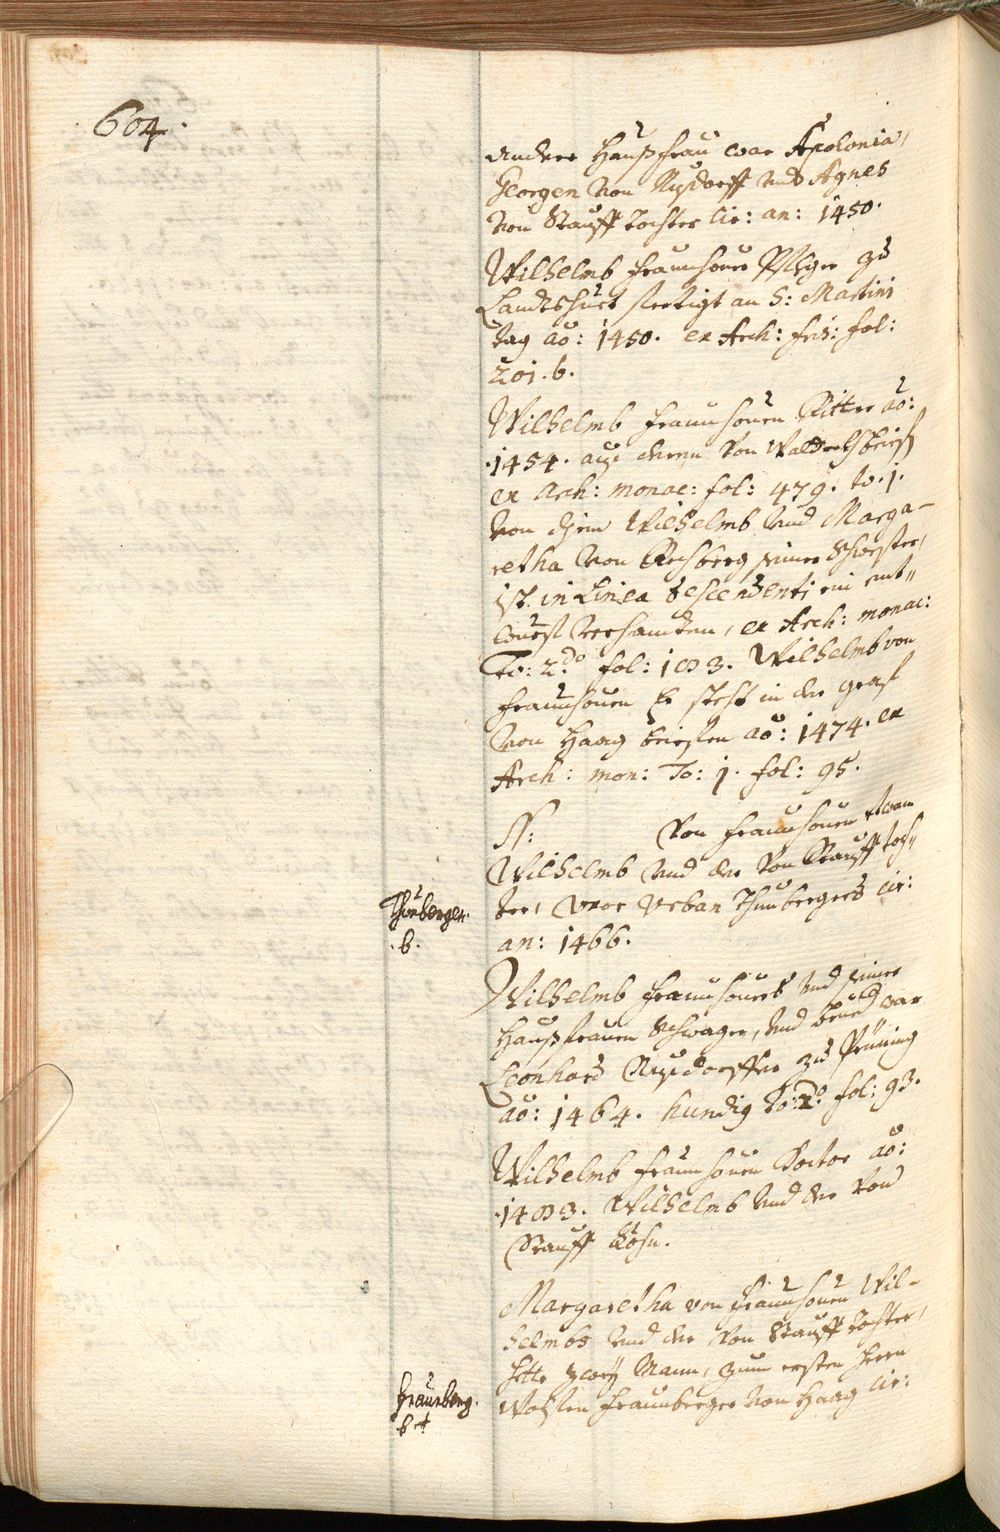 604.
andere Haußfrau war Apolonia,
Georgen von Nusdorff und Agnes
von Stauff Tochter cir: an: 1450.
Wilhelmb Fraunhouer Pfleger zu
Landtshuet siertigt an S: Martini
tag aõ: 1450. ex Arch: fris: fol:
201. b.
Wilhelmb Fraunhouen Ritter aõ:
1454. aus denen von
ex Arch: monac: fol: 479. to. 1.
von disem Wilhelmb und Marga-
retha von Rechberg seiner Schwester,
ist in Linea descendenti ein ent"
wurff verhanden, ex Arch: monac:
To: 2do fol: 183. Wilhelmb von
Fraunhouen Er steht in der Graf
von Haag brieffen aõ: 1474. ex
Arch: mon: To: 1. fol: 95.
N: von Fraunhouen etwan
Wilhelmb und der von Stauff toch"
ter, Uxor Urban Thunbergers cir:
an: 1466.
Thonberger.
b.
Wilhelmb Fraunhouers und seiner
Haußfrauen Schwager, und Brued war
Leonhard Nusdorffer zu Prüning
aõ: 1464. Hundig to: 2do fol: 93.
Wilhelmb Fraunhouen Doctor aõ:
1483. Wilhelmb und der von
Stauff Sohn.
Margaretha von Fraunhouen Wil-
helmbs und der von Stauff Tochter,
hette zwey Mann, zum ersten Herrn
Frauenberger von Haag cir:
Fraunberg.
b et